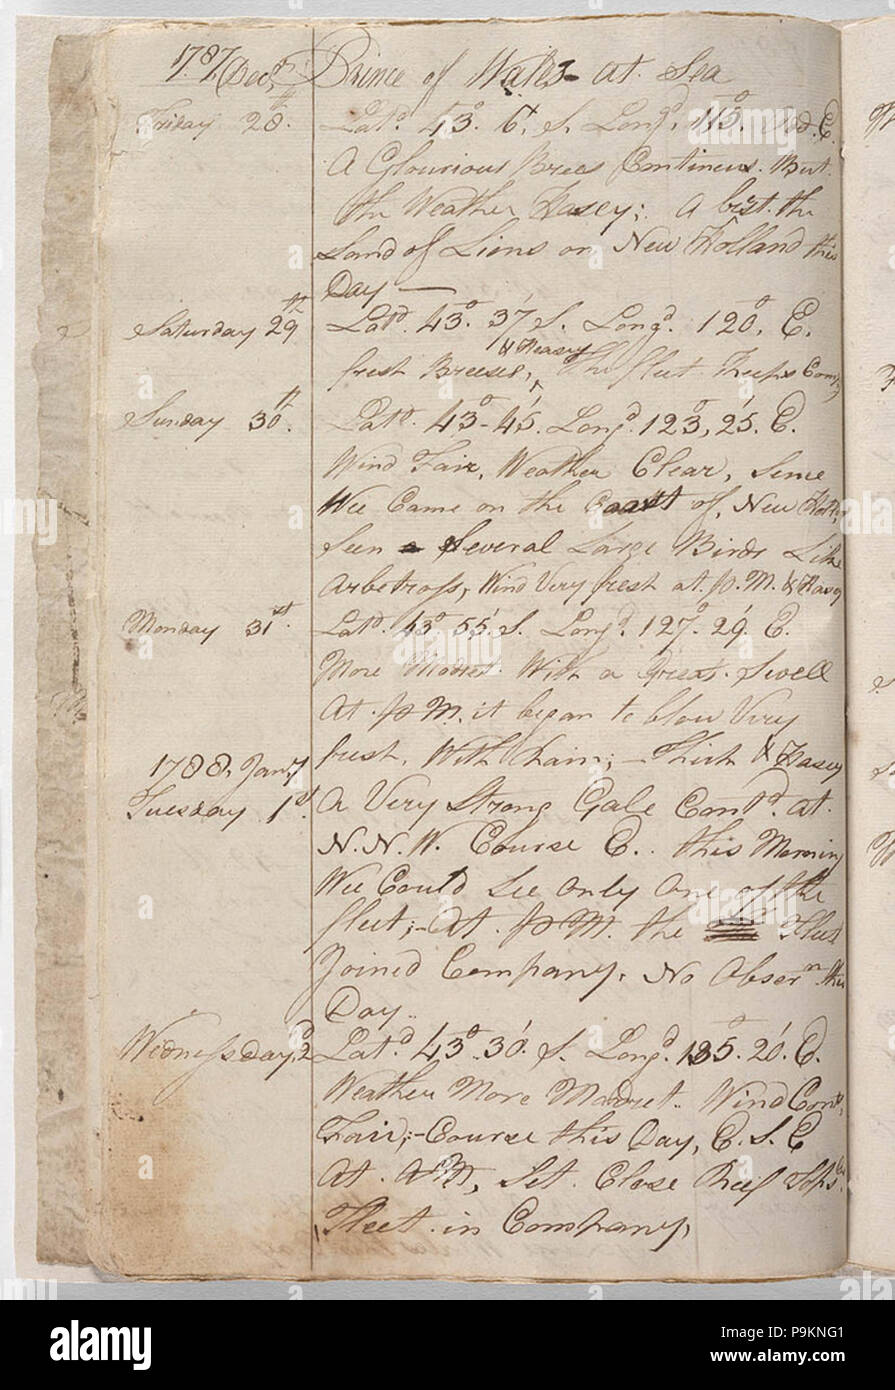 1787, Decr. Prince of Wales at Sea
Friday 28th. Latd. 43°. 6'. S. Longd. 115°. E.
A Glourious Brees Contineus. But
the Weather Hasey; A brst. the
Land of Lions on New Holland this
Day —
Saturday 29th Latd. 43°. 37' S. Longd. 120°. E.
& Heasey
fresh Breeses, ^ The fleet Keeps Compy
Sunday 30th. Latd. 43°-45'. Longd. 123°, 25'. E.
Wind Fair, Weather Clear, Sence
Wee Came on the Coast of, New Holld,
Seen a Several Large Birds Like
Arbetross, Wind Very fresh at. P. M. & Hasey
Monday 31st. Latd. 43° 55'. S. Longd. 127°. 29'. E.
More Modret. With a Great. Swell
At. P M. it began to blow Very
fresh. With Rain; – Thick & Hasey
1788, Jany
Tuesday 1st. A Very Strong Gale Contd. at.
N. N. W. Course E. this Morning
Wee Could See only one of the
fleet; – At. P M. the Fleet
Joined Company. No Obsern. this
Day..
Wednessday, 2d Latd. 43°. 30'. S. Longd. 135°. 20'. E.
Weather More Modret. Wind Cont,
Fair; – Course this Day, E. S. E
At. PM, Set. Close Reef Topsls.
Fleet. in Company,
alamy
P9KNG1
www.alamy.com